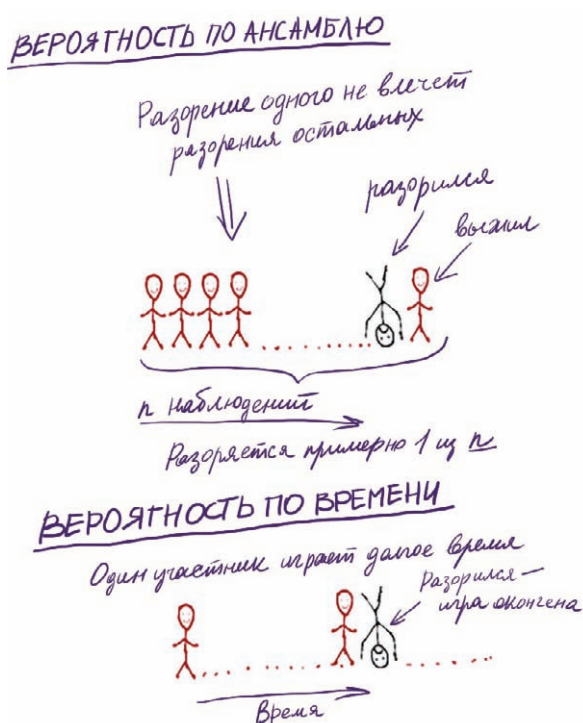 ВЕРОЯТНОСТЬ ПО АНСАМБЛЮ
Разорение одного не влечет
разорения остальных
разорился
выжил
n наблюдений
Разоряется примерно 1 из n
ВЕРОЯТНОСТЬ ПО ВРЕМЕНИ
Один участник играет долгое время
Разорился —
игра окончена
Время